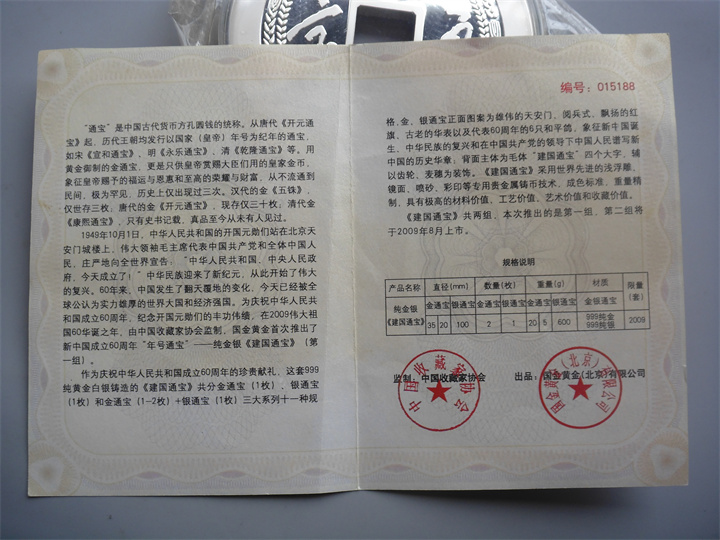 "通宝"是中国古代货币方孔圆钱的统称。从唐代《开元通
宝》起,历代王朝均发行以国家(皇帝)年号为纪年的通宝,
如宋《宣和通宝》、明《永乐通宝》、清《乾隆通宝》等。用
黄金御制的金通宝,更是只供皇帝赏赐大臣们用的皇家金币,
象征皇帝赐予的福运与恩惠和至高的荣耀与财富,从不流通到
民间,极为罕见,历史上仅出现过三次。汉代的金《五铢》,
仅世存三枚;唐代的金《开元通宝》,现存仅三十枚;清代金
《康熙通宝》,只有史书记载,真品至今从未有人见过。
1949年10月1日,中华人民共和国的开国元勋们站在北京天
安门城楼上,伟大领袖毛主席代表中国共产党和全体中国人
民,庄严地向全世界宣告:"中华人民共和国,中央人民政
府,今天成立了!"中华民族迎来了新纪元,从此开始了伟大
的复兴。60年来,中国发生了翻天覆地的变化,今天已经被全
球公认为实力雄厚的世界大国和经济强国。为庆祝中华人民共
和国成立60周年,纪念开国元勋们的丰功伟绩,在2009伟大祖
国60华诞之年,由中国收藏家协会监制,国金黄金首次推出了
新中国成立60周年"年号通宝"——纯金银《建国通宝》(第
一组)。
作为庆祝中华人民共和国成立60周年的珍贵献礼,这套999
纯黄金白银铸造的《建国通宝》共分金通宝(1枚)、银通宝
(1枚)和金通宝(1-2枚)+银通宝(1枚)三大系列十一种规
编号:015188
格,金、银通宝正面图案为雄伟的天安门,阅兵式,飘扬的红
旗、古老的华表以及代表60周年的6只和平鸽,象征新中国诞
生,中华民族的复兴和在中国共产党的领导下中国人民谱写新
中国的历史华章;背面主体为毛体"建国通宝"四个大字,辅
以齿轮、麦穗为装饰。《建国通宝》采用世界先进的浅浮雕,
镜面,喷砂、彩印等专用贵金属铸币技术,成色标准,重量精
制,具有极高的材料价值,工艺价值,艺术价值和收藏价值。
《建国通宝》共两组,本次推出的是第一组,第二组将
于2009年8月上市。
规格说明
产品名称 直径(mm) 数量(枚) 重量(g) 材质 限量(套)
纯金银《建国通宝》 金通宝 银通宝 金通宝 银通宝 金通宝 银通宝 金银通宝 2009
35 20 100 2 1 20 5 600 999纯金 999纯银
监制:中国收藏家协会 出品:国金黄金(北京)有限公司
中国收藏家协会
国金黄金(北京)有限公司